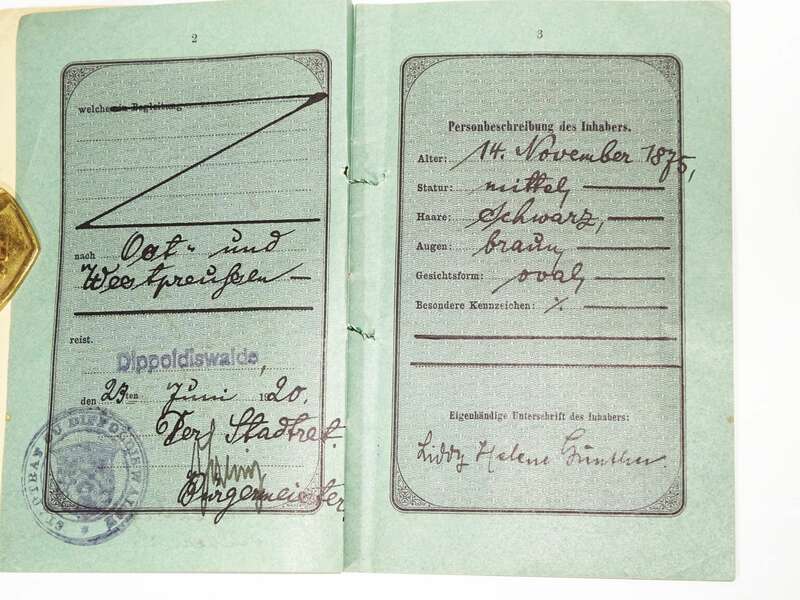 2
welche in Begleitung
nach Ost- und
Westpreußen —
reist.
Dippoldiswalde,
den 23ten Juni 1920.
Der Stadtrat.
Bürgermeister
STADTRAT ZU DIPPOLDISWALDE
3
Personbeschreibung des Inhabers.
Alter: 14. November 1875,
Statur: mittel,
Haare: schwarz,
Augen: braun,
Gesichtsform: oval,
Besondere Kennzeichen: ⁒
Eigenhändige Unterschrift des Inhabers:
Liddy Helene Günther.